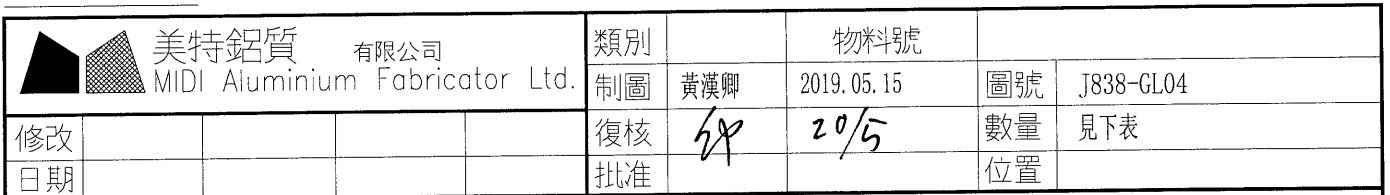 美特鋁質 有限公司
MIDI Aluminium Fabricator Ltd.
類別 物料號
制圖 黃漢卿 2019.05.15 圖號 J838-GL04
修改 復核 20/5 數量 見下表
日期 批准 位置